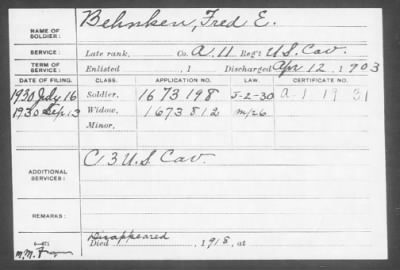 NAME OF SOLDIER: Behnken, Fred E.
SERVICE: Late rank, Co. A, 11 Reg't U.S. Cav.
TERM OF SERVICE: Enlisted , 1 Discharged Apr. 12, 1903
DATE OF FILING. CLASS. APPLICATION NO. LAW. CERTIFICATE NO.
1930 July 16 Soldier, 1673198 J-2-30 A-1-19 31
1930 Sep 13 Widow, 1673812 m/26
Minor,
ADDITIONAL SERVICES: C 3 U.S. Cav.
REMARKS:
Disappeared
Died , 1915, at